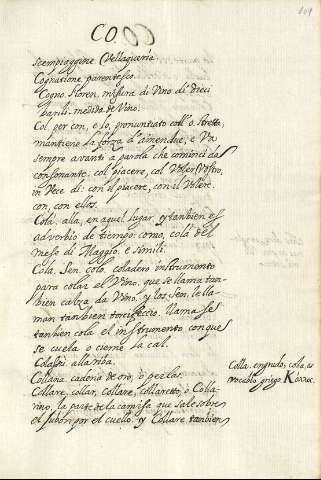 CO
109
scempiaggine Vellaquería
Cognatione. parentesco.
Cogno. Floren. misura di Vino di dieci
barili. medida de Vino.
Col. per con, e lo, pronuntiato coll'o. stretta,
mantiene la forza d'amendue, e Va
sempre avanti a parola che cominci da
consonante. col piacere, col Voler Vostro,
in Vece di: con il piacere, con il Volere.
con, con ellos.
Cola. alla, en aquel lugar, y tambien es
adverbio de tiempo: como, colà del
mese di Maggio. e simili.
Cola. Sen. colo. coladero instrumento
para colar el Vino, que se llama tan-
bien calza da Vino, y los Sen. le lla-
man tambien torcifeccio. llama se
tanbien cola el instrumento con que
se cuela o cierne la cal.
Colassù. alla riba.
Collana. cadena de oro, o perlas
Collare, collar, collare, collaretto, o Colla-
rino, la parte de la camisa que sale sobre
el jubon por el cuello. y Collare tambien
Colla. engrudo, cola, es
Vocablo griego Κόλλα.